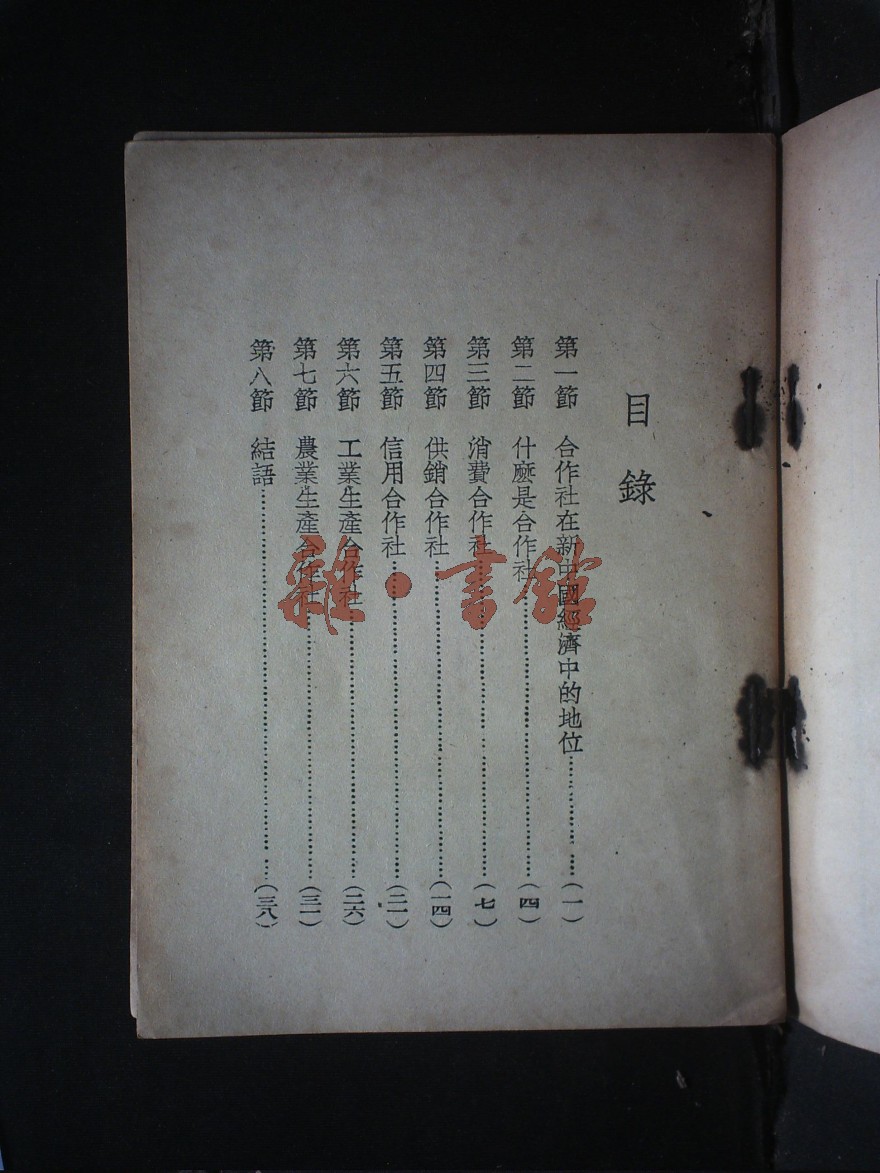 目錄
第一節 合作社在新中國經濟中的地位……………(一)
第二節 什麼是合作社……………(四)
第三節 消費合作社……………(七)
第四節 供銷合作社……………(一四)
第五節 信用合作社……………(二一)
第六節 工業生產合作社……………(二六)
第七節 農業生產合作社……………(三一)
第八節 結語……………(三八)
雜·書館